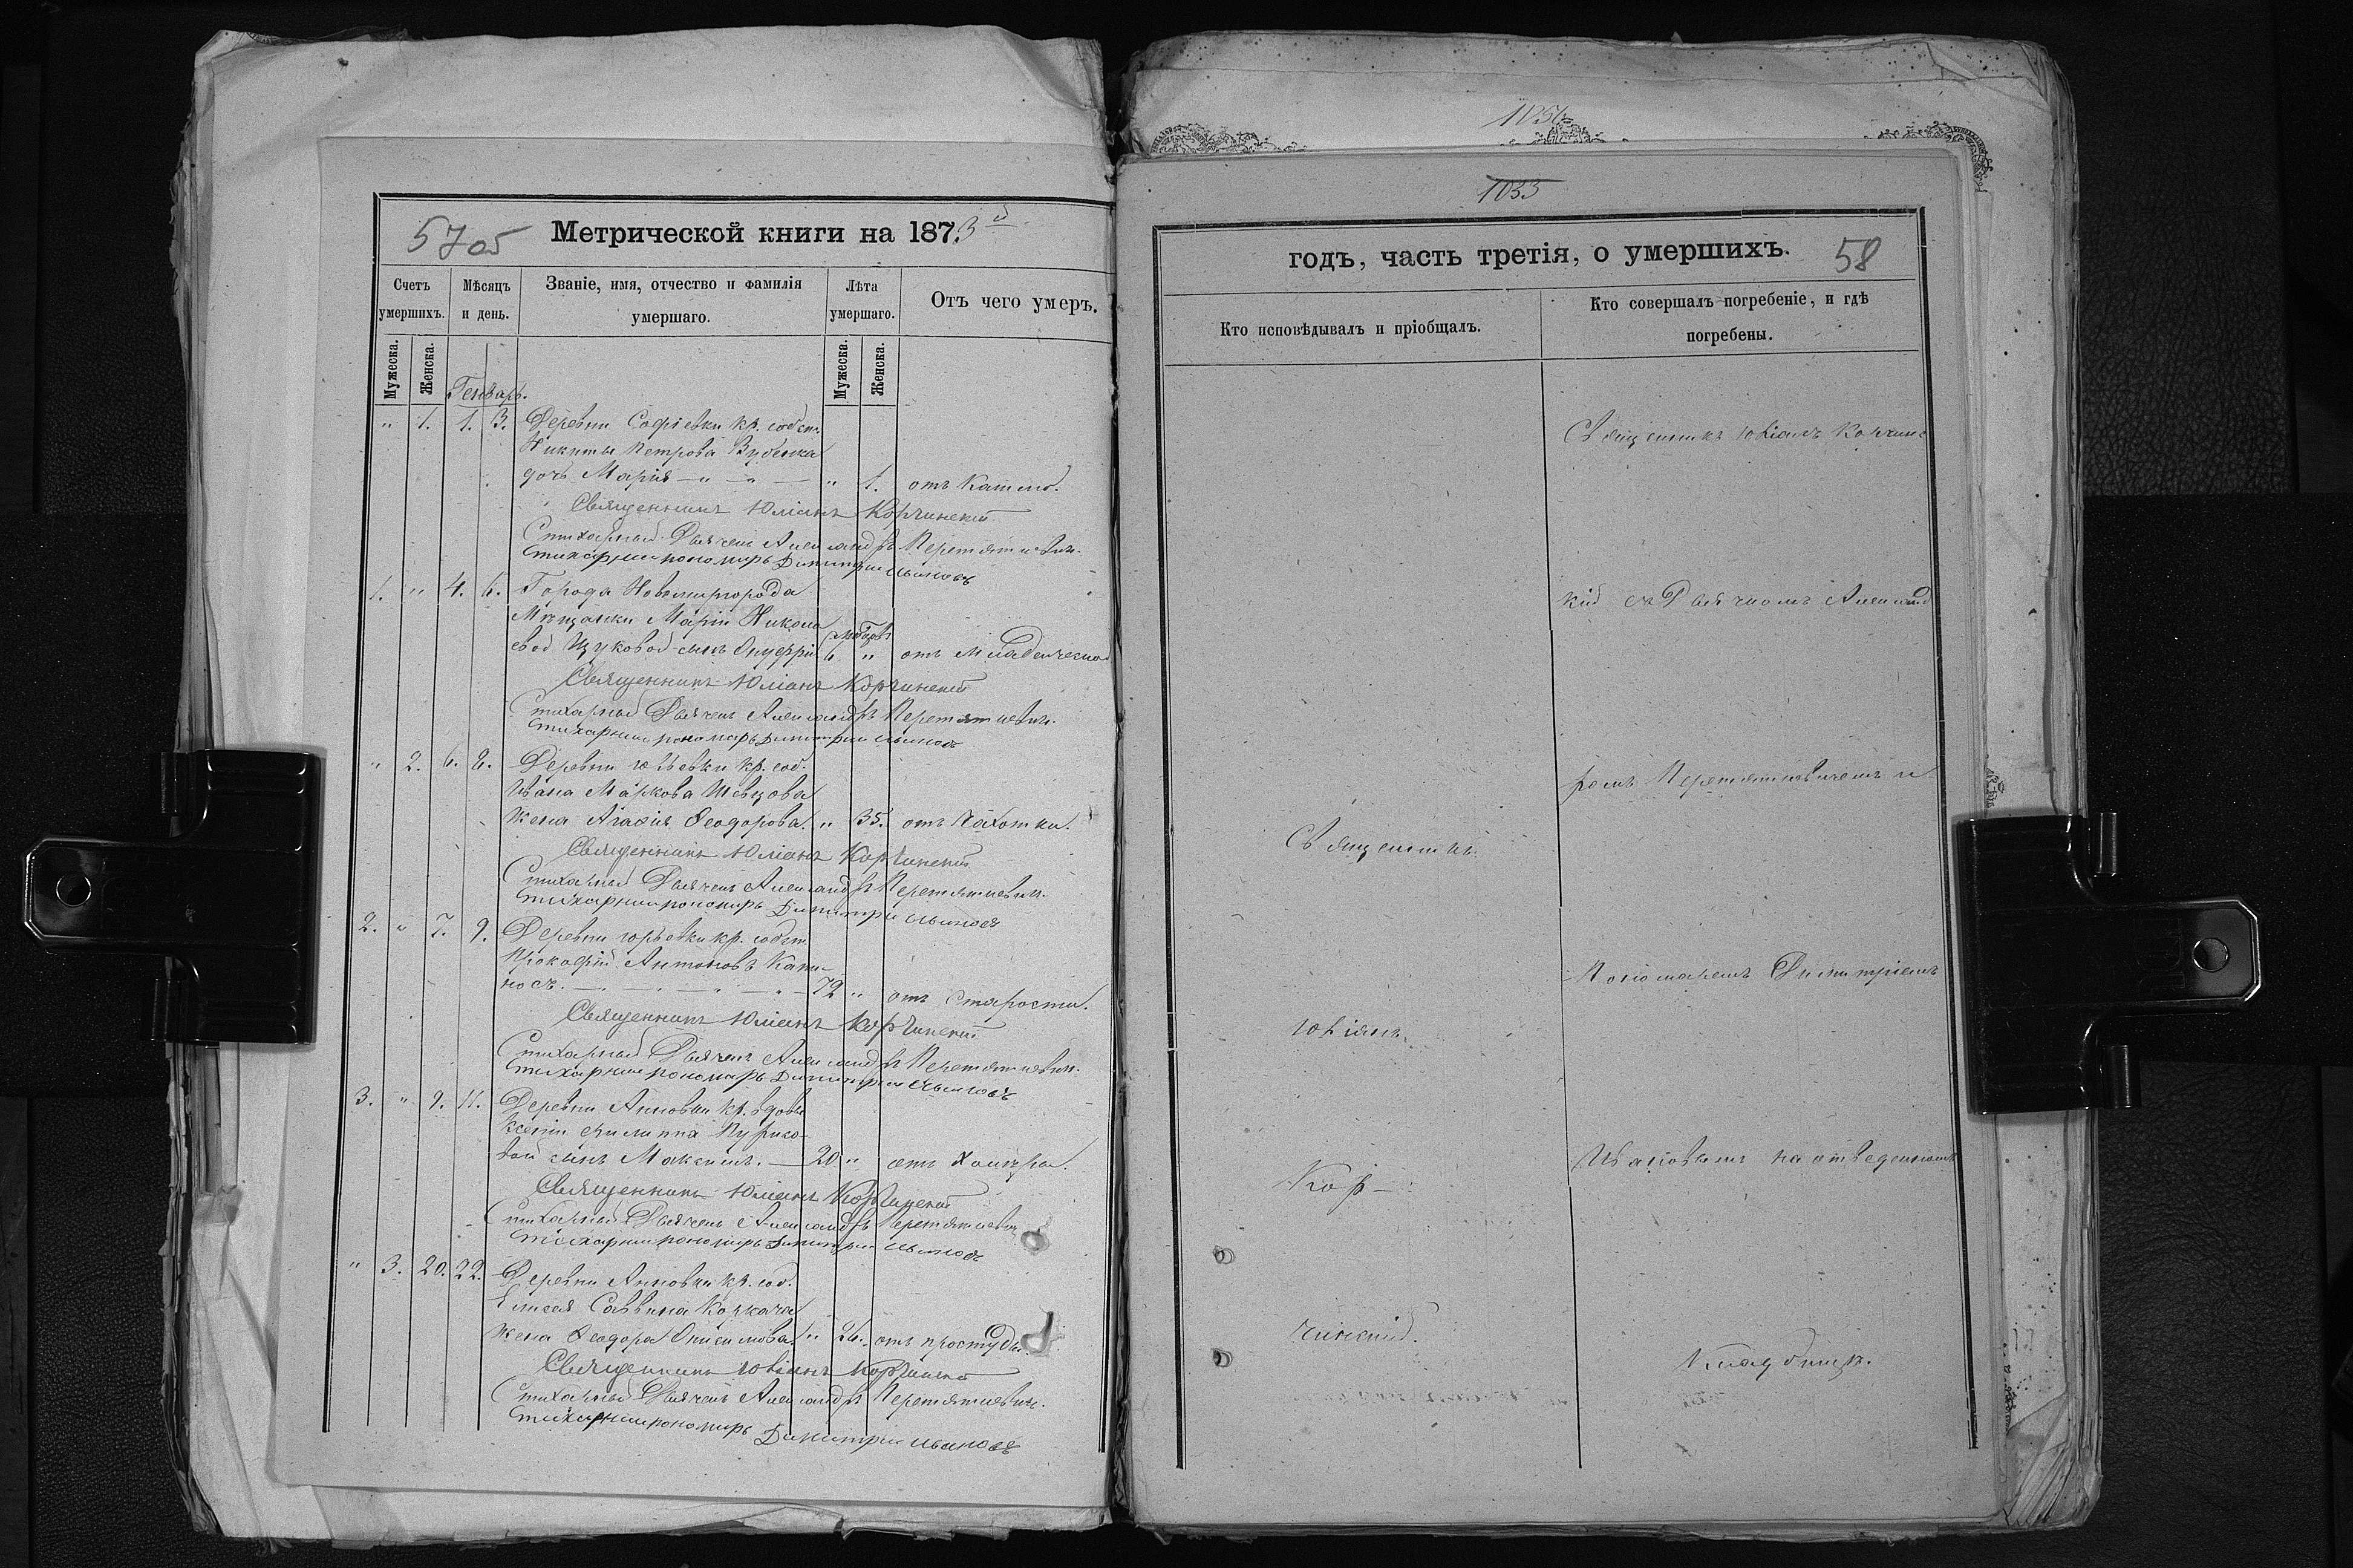 57об
Метрической книги на 1873й
Счетъ умершихъ.
Мѣсяцъ и день.
Званіе, имя, отчество и фамилія умершаго.
Лѣта умершаго.
Отъ чего умеръ.
Мужеска.
Женска.
Мужеска.
Женска.
Генварь.
" 1. 1. 3. Деревни Софіевки кр. собст.
Никиты Петрова
дочь Марія — " — " — " 1. отъ Кашлю.
Священникъ Юліанъ Корчинскій
Стихарный Дьячекъ Александръ Перетяткевич.
Стихарный пономарь Димитрій Ивановъ
1. " 4. 6. Города Новомиргорода
Мѣщанки Маріи Никола
евой Щуковой сынъ Онуфрій 6 " отъ Младенческой
Священникъ Юліанъ Корчинскій
Стихарный Дьячекъ Александръ Перетяткевич.
Стихарный пономарь Димитрій Ивановъ
" 2. 6. 8. Деревни кр. соб.
Ивана Маркова Шевцова
жена Агафія Ѳеодорова. " 35. отъ Чахотки.
Священникъ Юліанъ Корчинскій
Стихарный Дьячекъ Александръ Перетяткевич.
Стихарный пономарь Димитрій Ивановъ
2. " 7. 9. Деревни Юрьевки кр. собст.
Прокофій Антоновъ
носъ. — " — " — " — 72 " отъ Старости.
Священникъ Юліанъ Корчинскій
Стихарный Дьячекъ Александръ Перетяткевич.
Стихарный пономарь Димитрій Ивановъ
3. " 9. 11. Деревни Анновки кр. вдовы
Ксеніи Филиппа Пурико
вой сынъ Максимъ. — 20 " отъ
Священникъ Юліанъ Корчинскій
Стихарный Дьячекъ Александръ Перетяткевич
Стихарный пономарь Димитрій Ивановъ
" 3. 20. 22. Деревни Анновки кр. соб.
Елисея Саввина
жена Ѳеодора Онисимова " 26. отъ простуды.
Священникъ Юліанъ Корчинскій
Стихарный Дьячекъ Александръ Перетяткевич.
Стихарный пономарь Димитрій Ивановъ
1056
1055
годъ, часть третія, о умершихъ.
58
Кто исповѣдывалъ и пріобщалъ.
Кто совершалъ погребеніе, и гдѣ погребены.
Священникъ Юліанъ Корчинс
кій съ Дьячкомъ Александ
ромъ Перетяткевичемъ и
Священникъ
Пономаремъ Димитріемъ
Юліанъ
Ивановымъ на отведенномъ
Кор-
чинскій.
Кладбищѣ.